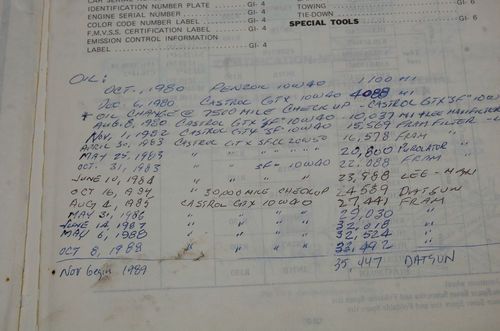 IDENTIFICATION NUMBER PLATE .... GI- 4
ENGINE SERIAL NUMBER .... GI- 4
COLOR CODE NUMBER LABEL .... GI- 4
F.M.V.S.S. CERTIFICATION LABEL .... GI- 4
EMISSION CONTROL INFORMATION
LABEL .... GI- 4
TOWING
TIE-DOWN .... GI- 6
SPECIAL TOOLS
OIL:
OCT., 1980 PENZOIL 10W40 1100 MI
DEC 6, 1980 CASTROL GTX 10W40 4088 MI
* OIL CHANGE @ 7500 MILE CHECKUP - CASTROL GTX "SF"
CASTROL GTX "SF" 10W40 10,037 MI
NOV, 1, 1982 CASTROL GTX "SF" 10W40 15,509 FRAM FILTER
APRIL 30, 1983 CASTROL GTX 20W50 16,578 FRAM
MAY 25, 1983 " " " 20,800 PUROLATOR
OCT. 31, 1983 " " SF" 10W40 22,088 FRAM
JUNE 10, 1984 " " " " 23,588 LEE-MAXI
OCT 16, 1984 " 30,000 MILE CHECKUP 24,589 DATSUN
AUG 4, 1985 CASTROL GTX 10W40 27,441 FRAM
MAY 31, 1986 " " " 29,030 "
JUNE 14, 1987 " " " 32,018 "
MAY 6, 1988 " " " 32,524 "
OCT 8, 1988 " " " 33,492 "
Nov begin 1989 35,447 DATSUN